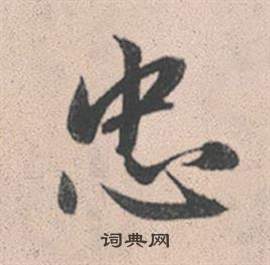 忠
词典网